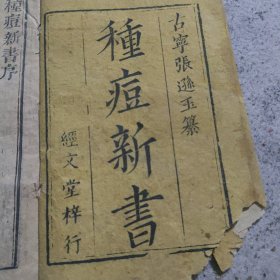 古寧張遜玉纂
種痘新書
經文堂梓行
種痘新書序